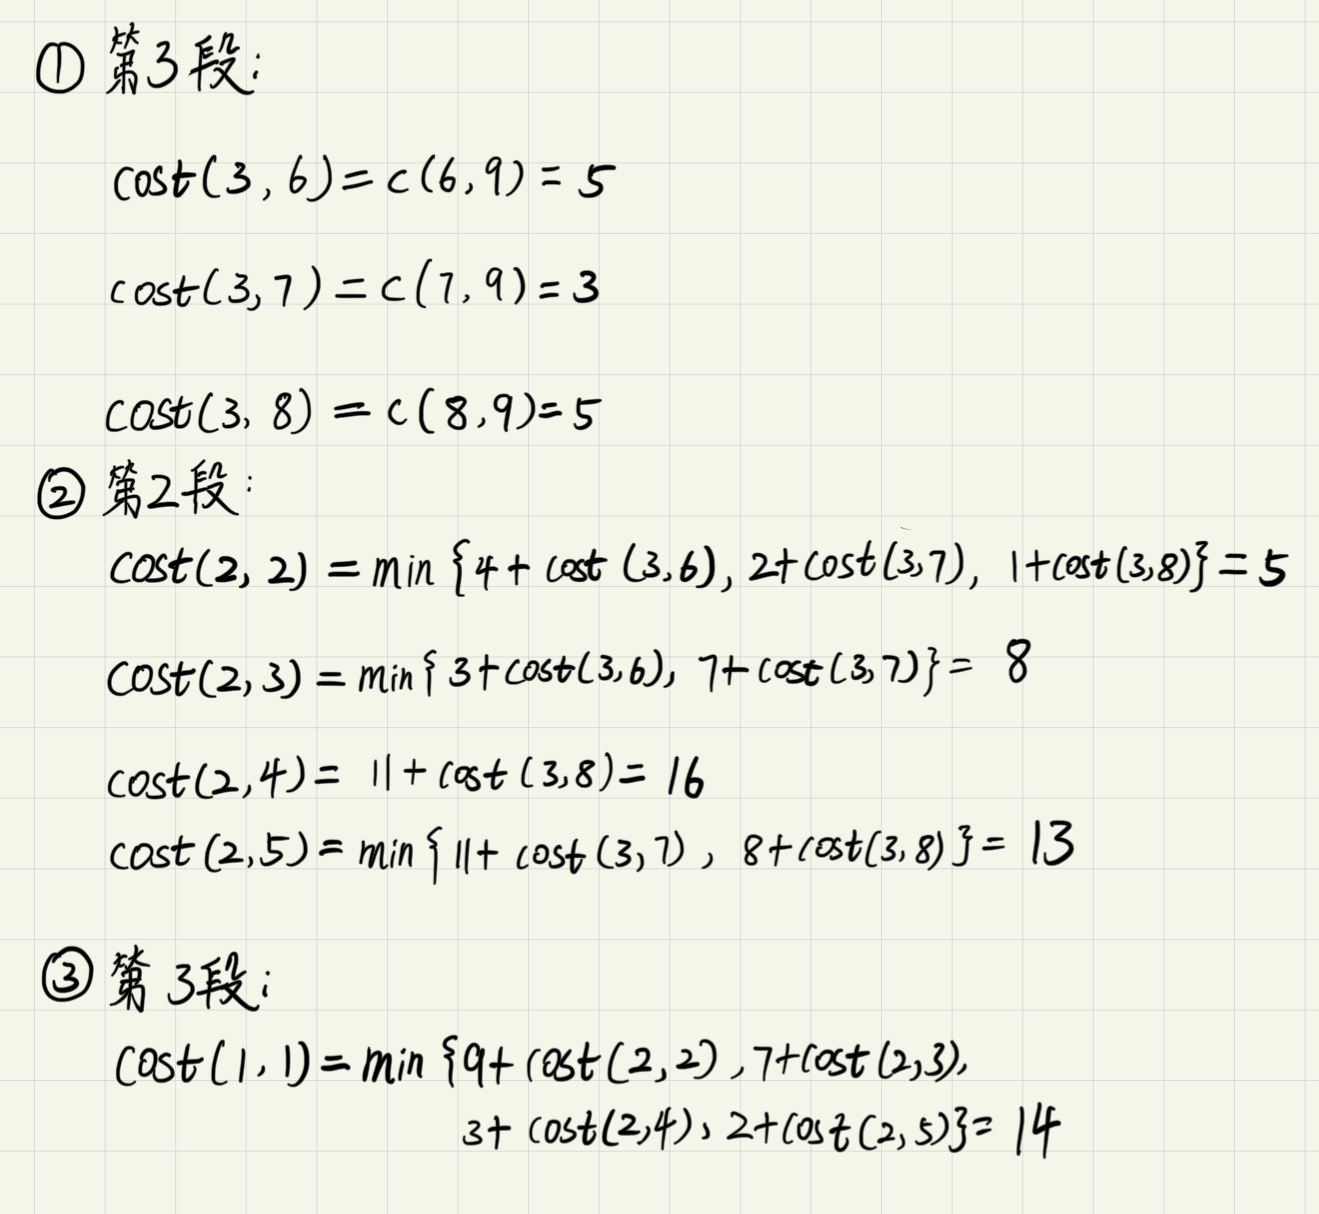 ① 第3段:
cost(3,6)=c(6,9)=5
cost(3,7)=c(7,9)=3
cost(3,8)=c(8,9)=5
② 第2段:
cost(2,2)=min{4+cost(3,6),2+cost(3,7),1+cost(3,8)}=5
cost(2,3)=min{3+cost(3,6),7+cost(3,7)}=8
cost(2,4)=11+cost(3,8)=16
cost(2,5)=min{11+cost(3,7),8+cost(3,8)}=13
③ 第3段:
cost(1,1)=min{9+cost(2,2),7+cost(2,3),
3+cost(2,4)、2+cost(2,5)}=14